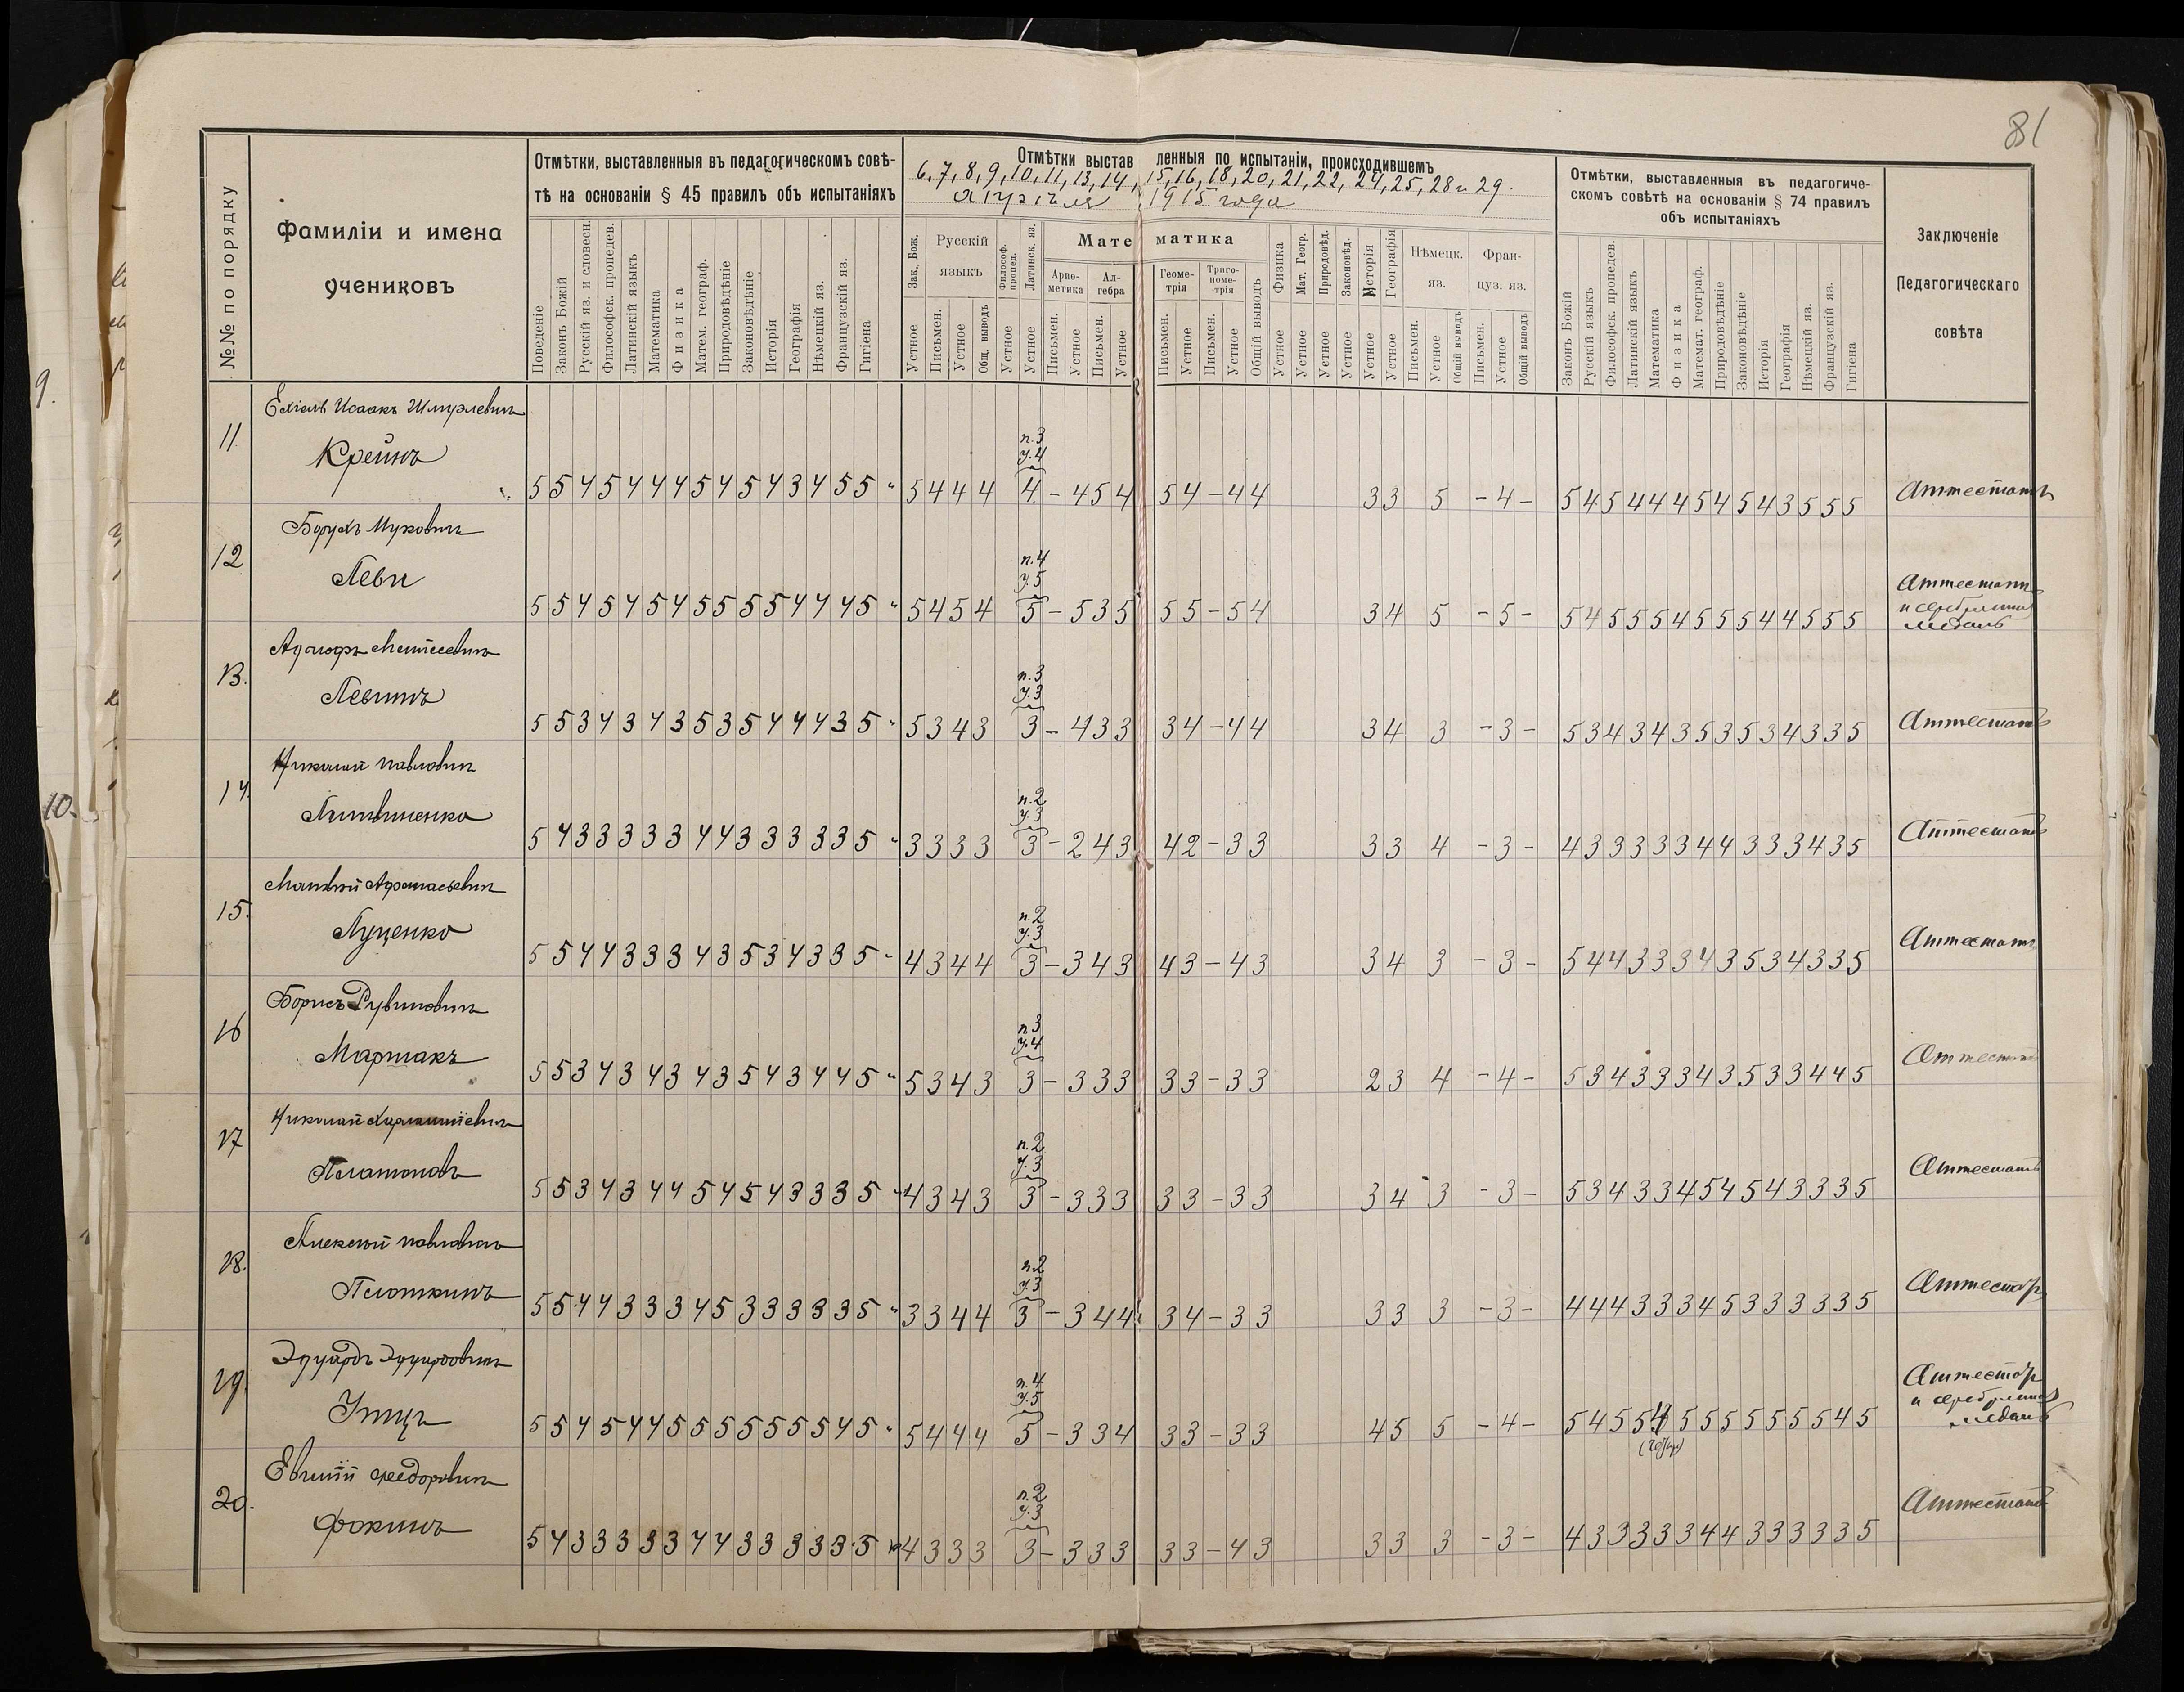 81
№№ по порядку
Фамиліи и имена
учениковъ
Отмѣтки, выставленныя въ педагогическомъ совѣ-
тѣ на основаніи § 45 правилъ объ испытаніяхъ
Поведеніе
Законъ Божій
Русскій яз. и словесн.
Философск. пропедев.
Латинскій языкъ
Математика
Физика
Матем. географ.
Природовѣдѣніе
Законовѣдѣніе
Исторія
Географія
Нѣмецкій яз.
Французскій яз.
Гигіена
Отмѣтки выставленныя по испытаніи, происходившемъ
6, 7, 8, 9, 10, 11, 13, 14, 15, 16, 18, 20, 21, 22, 24, 25, 28 и 29.
апрѣля 1915 года
Зак. Бож.
Русскій
языкъ
Философ. пропед.
Латинск. яз.
Математика
Арио-
метика
Ал-
гебра
Геоме-
трія
Триго-
номе-
трія
Общій выводъ
Физика
Мат. Геогр.
Природовѣд.
Законовѣд.
Исторія
Географія
Нѣмецк.
яз.
Фран-
цуз. яз.
Устное
Письмен.
Устное
Общ. выводъ
Устное
Письмен.
Устное
Письмен.
Устное
Письмен.
Устное
Письмен.
Устное
Устное
Устное
Устное
Устное
Устное
Устное
Письмен.
Устное
Общій выводъ
Письмен.
Устное
Общій выводъ
Отмѣтки, выставленныя въ педагогиче-
скомъ совѣтѣ на основаніи § 74 правилъ
объ испытаніяхъ
Законъ Божій
Русскій языкъ
Философск. пропедев.
Латинскій языкъ
Математика
Физика
Математ. географ.
Природовѣдѣніе
Законовѣдѣніе
Исторія
Географія
Нѣмецкій яз.
Французскій яз.
Гигіена
Заключеніе
Педагогическаго
совѣта
11
Исаакъ
Крейнъ
5 5 4 5 4 4 4 5 4 5 4 3 4 5 5 "
5 4 4 4
п. 3
у. 4
4 - 4 5 4
5 4 - 4 4
3 3 5 - 4 -
5 4 5 4 4 4 5 4 5 4 3 5 5 5
Аттестатъ
12
Борухъ
Леви
5 5 4 5 4 5 4 5 5 5 5 4 4 4 5 "
5 4 5 4
п. 4
у. 5
5 - 5 3 5
5 5 - 5 4
3 4 5 - 5 -
5 4 5 5 5 4 5 5 5 4 4 5 5 5
Аттестатъ
и серебряная
медаль
13.
Адольфъ
Левинъ
5 5 3 4 3 4 3 5 3 5 4 4 4 3 5 "
5 3 4 3
п. 3
у. 3
3 - 4 3 3
3 4 - 4 4
3 4 3 - 3 -
5 3 4 3 4 3 5 3 5 3 4 3 3 5
Аттестатъ
14.
Николай Павловичъ
Литвиненко
5 4 3 3 3 3 3 4 4 3 3 3 3 3 5 "
3 3 3 3
п. 2
у. 3
3 - 2 4 3
4 2 - 3 3
3 3 4 - 3 -
4 3 3 3 3 3 4 4 3 3 3 4 3 5
Аттестатъ
15.
Матвѣй Афанасьевичъ
Луценко
5 5 4 4 3 3 3 4 3 5 3 4 3 3 5 "
4 3 4 4
п. 2
у. 3
3 - 3 4 3
4 3 - 4 3
3 4 3 - 3 -
5 4 4 3 3 3 4 3 5 3 4 3 3 5
Аттестатъ
16
Борисъ Рувиновичъ
Маршакъ
5 5 3 4 3 4 3 4 3 5 4 3 4 4 5 "
5 3 4 3
п. 3
у. 4
3 - 3 3 3
3 3 - 3 3
2 3 4 - 4 -
5 3 4 3 3 3 4 3 5 3 3 4 4 5
Аттестатъ
17
Николай Харлампіевичъ
Платоновъ
5 5 3 4 3 4 4 5 4 5 4 3 3 3 5 "
4 3 4 3
п. 2
у. 3
3 - 3 3 3
3 3 - 3 3
3 4 3 - 3 -
5 3 4 3 3 4 5 4 5 4 3 3 3 5
Аттестатъ
18.
Алексѣй Павловичъ
Плоткинъ
5 5 4 4 3 3 3 4 5 3 3 3 3 3 5 "
3 3 4 4
п. 2
у. 3
3 - 3 4 4
3 4 - 3 3
3 3 3 - 3 -
4 4 4 3 3 3 4 5 3 3 3 3 3 5
Аттестатъ
19.
Эдуардъ Эдуардовичъ
5 5 4 5 4 4 5 5 5 5 5 5 5 4 5 "
5 4 4 4
п. 4
у. 5
5 - 3 3 4
3 3 - 3 3
4 5 5 - 4 -
5 4 5 5 4 5 5 5 5 5 5 5 4 5
Аттестатъ
и серебряная
медаль
20.
Евгеній Ѳеодоровичъ
Фокинъ
5 4 3 3 3 3 3 4 4 3 3 3 3 3 5 "
4 3 3 3
п. 2
у. 3
3 - 3 3 3
3 3 - 4 3
3 3 3 - 3 -
4 3 3 3 3 3 4 4 3 3 3 3 3 5
Аттестатъ
9.
10.